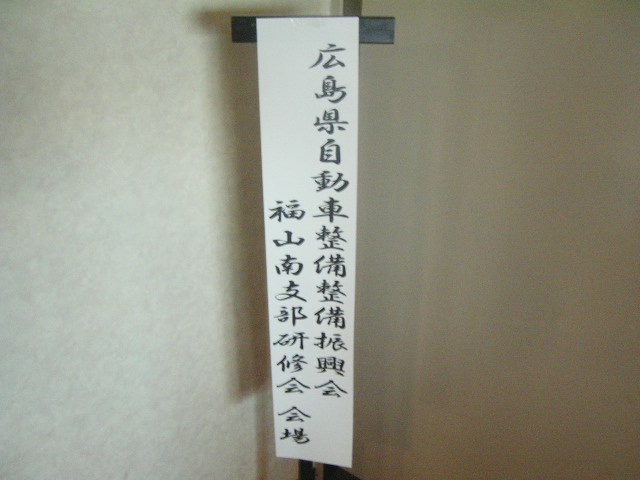 広島県自動車整備整備振興会
福山南支部研修会会場